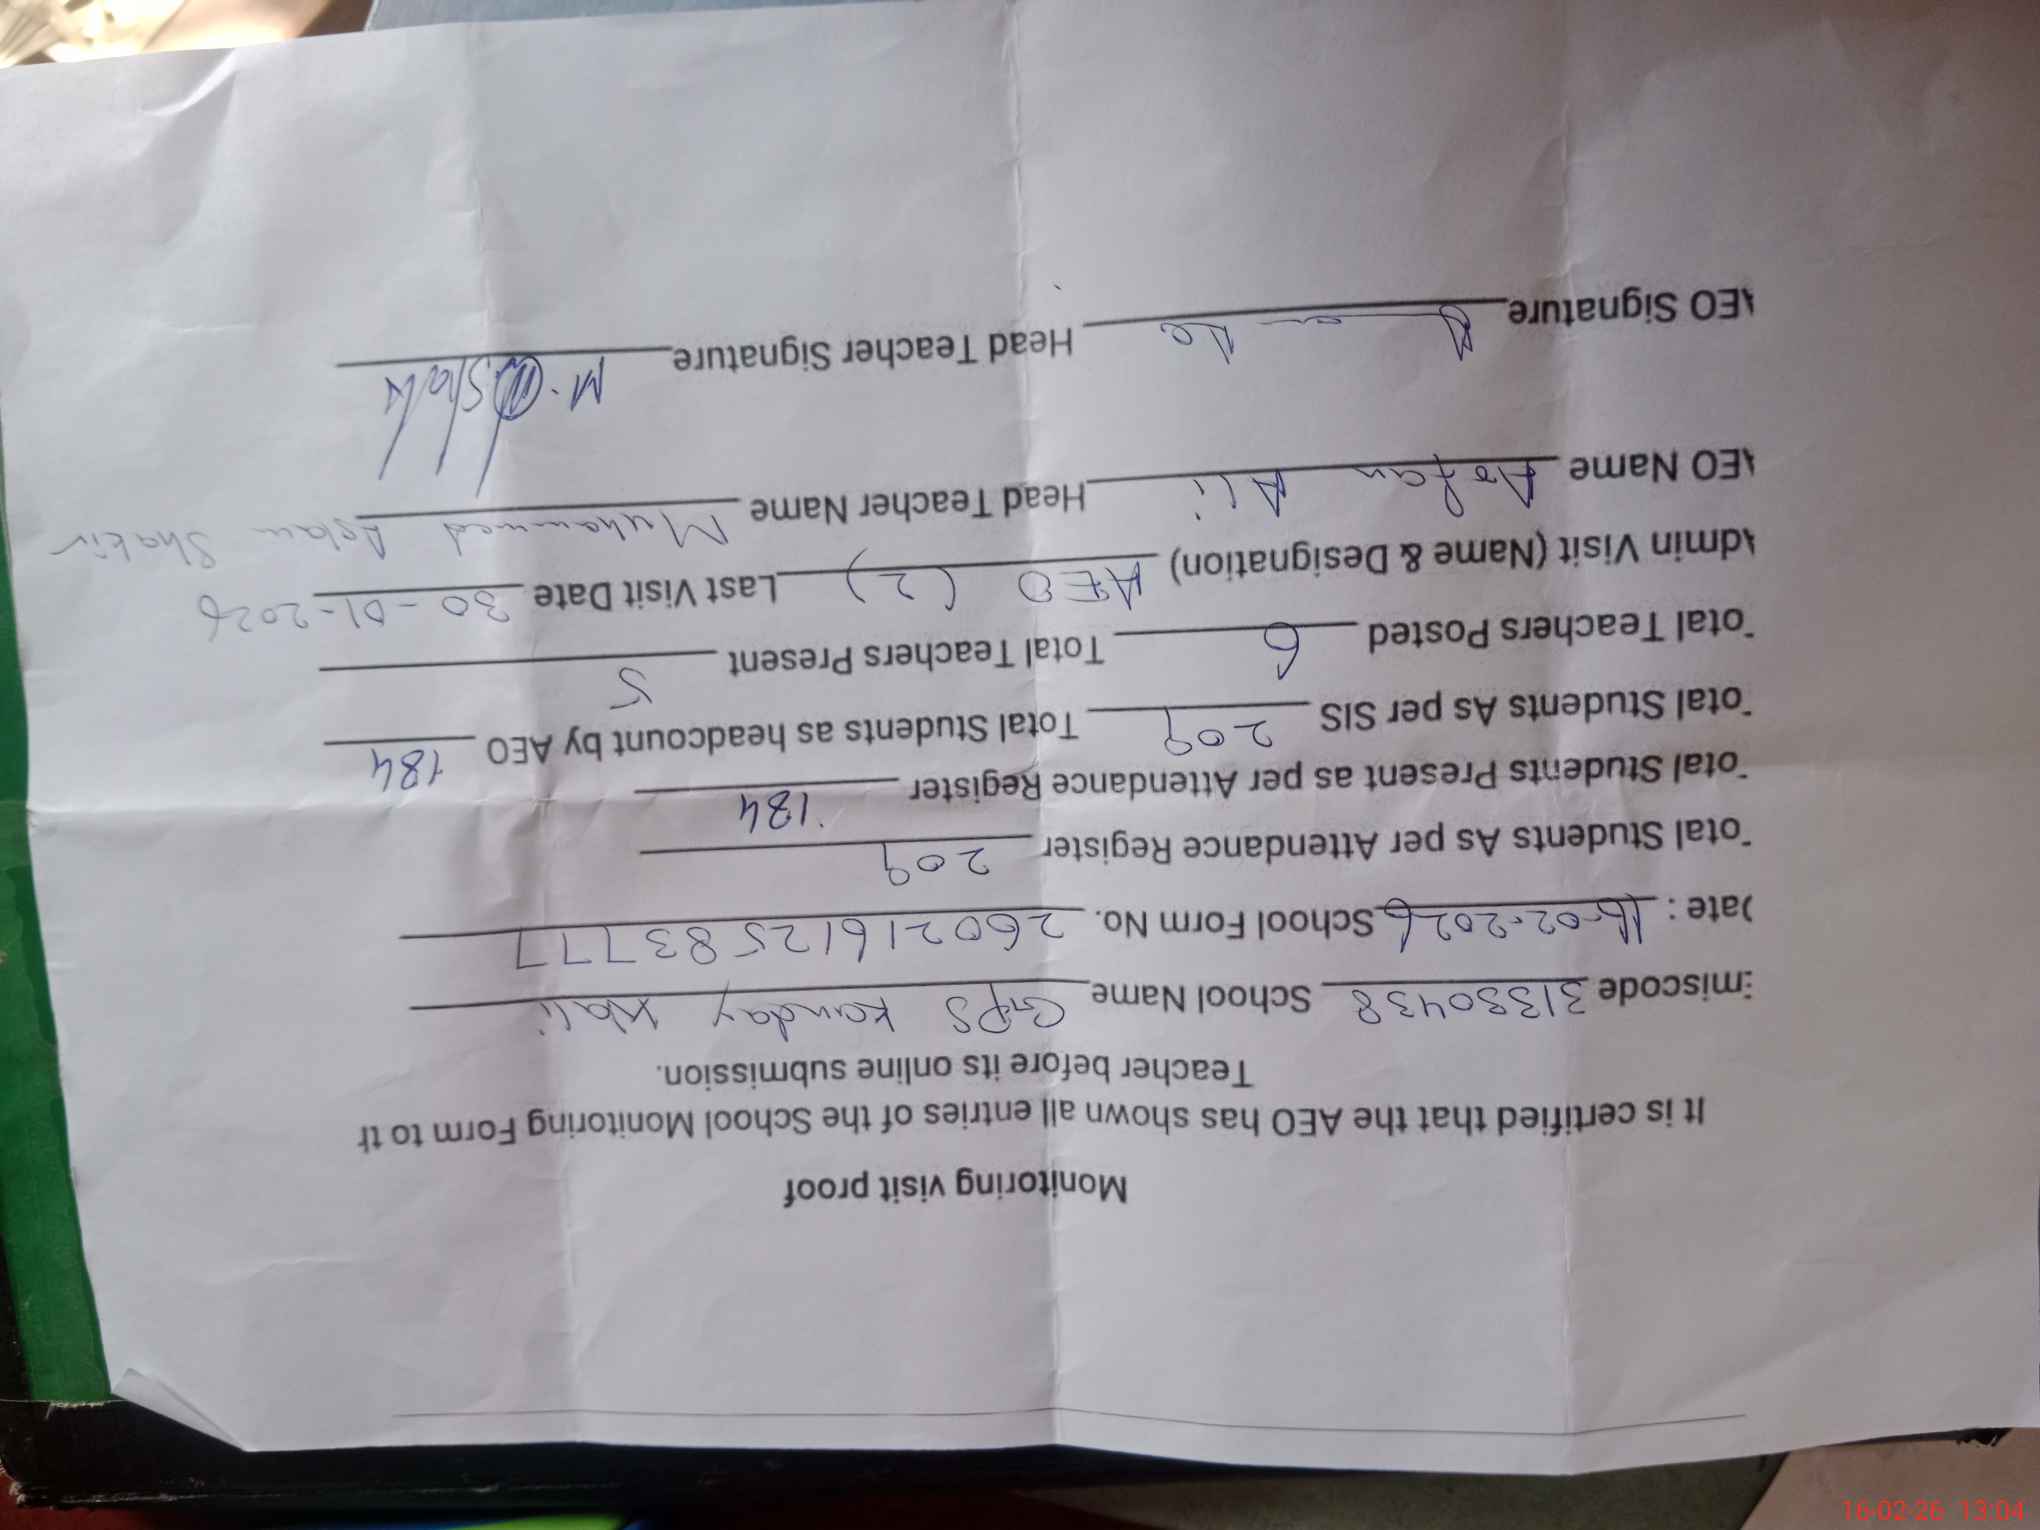 Monitoring visit proof
It is certified that the AEO has shown all entries of the School Monitoring Form to th
Teacher before its online submission.
Emiscode 31330438 School Name GPS Kanday Wali
Date : 16-02-2026 School Form No. 26021612583777
Total Students As per Attendance Register 209
Total Students Present as per Attendance Register 184
Total Students As per SIS 209 Total Students as headcount by AEO 184
Total Teachers Posted 6 Total Teachers Present 5
Admin Visit (Name & Designation) AEO (2) Last Visit Date 30-01-2026
AEO Name Arfan Ali Head Teacher Name Muhammad Aslam Shakir
AEO Signature Head Teacher Signature M. Shakir
16-02-26 13:04